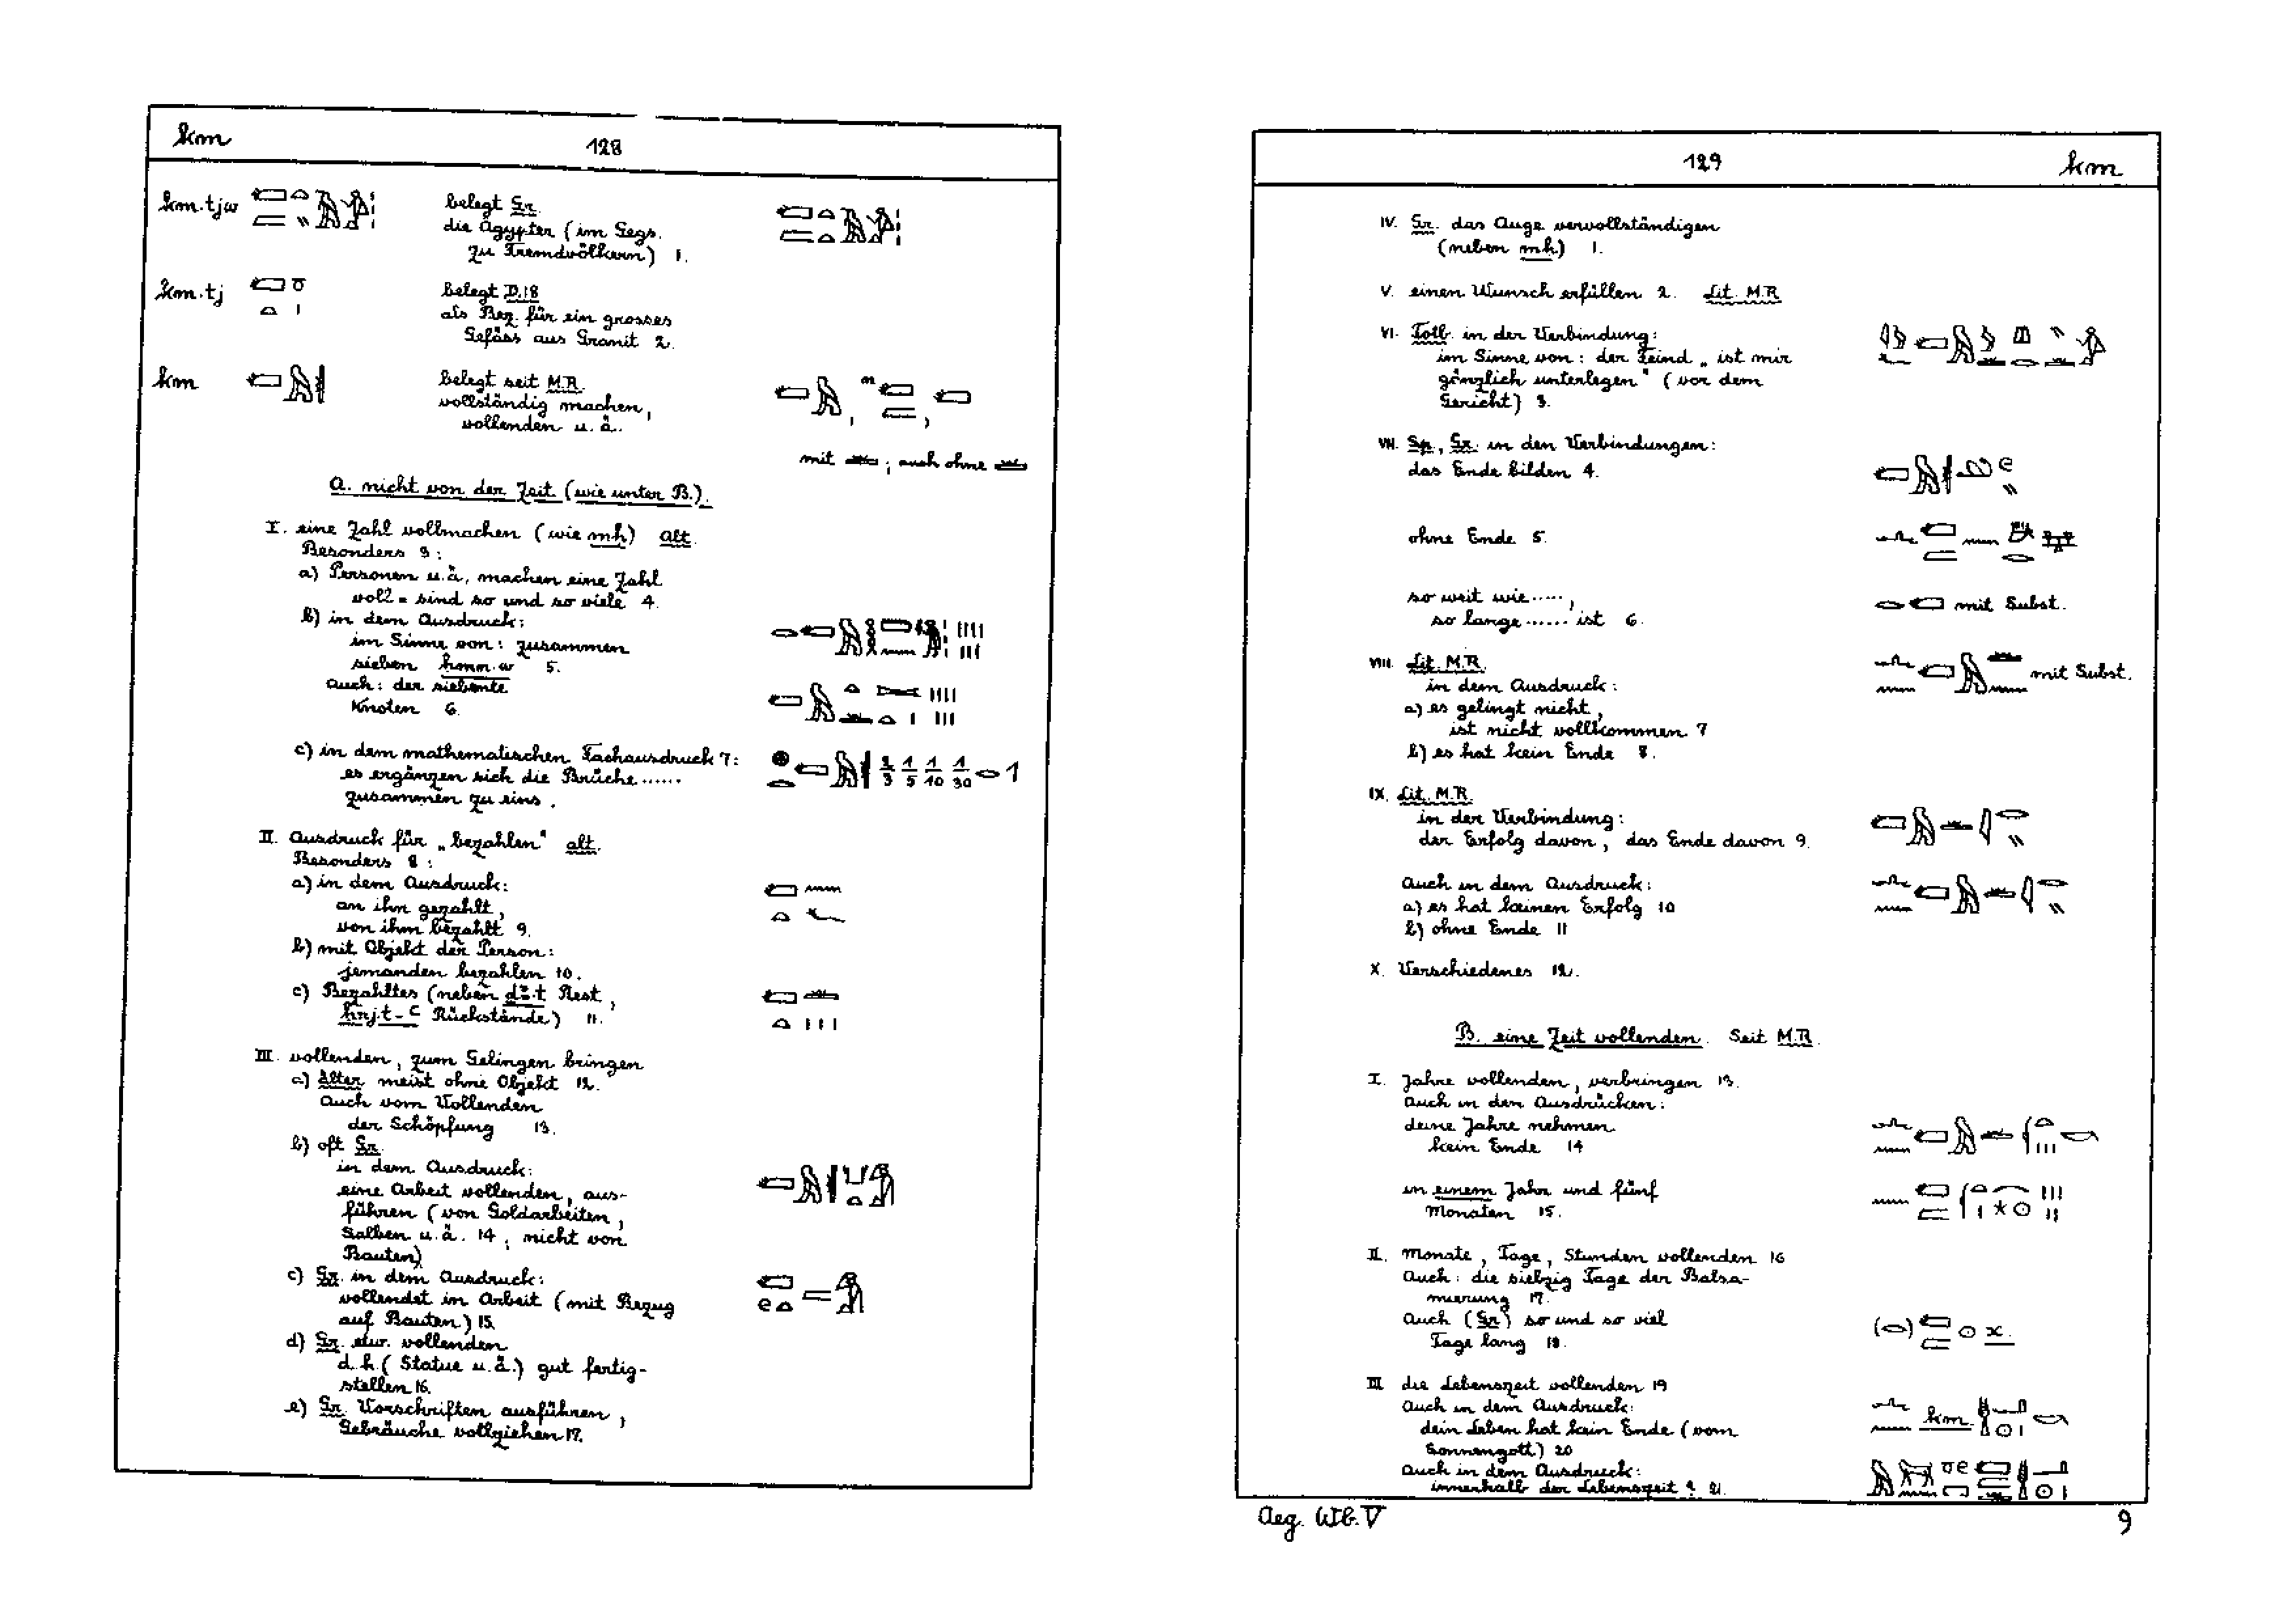 km
128
km.tjw
belegt Gr.
die Ägypter (im Gegs.
zu Fremdvölkern) 1.
km.tj
belegt D.18
als Bez. für ein grosses
Gefäss aus Granit 2.
km
belegt seit M.R.
vollständig machen,
vollenden u. ä.
mit ; auch ohne
A. nicht von der Zeit (wie unter B.).
I. eine Zahl vollmachen (wie mḥ) Alt.
Besonders 3:
a) Personen u.ä. machen eine Zahl
voll = sind so und so viele 4.
b) in dem Ausdruck:
im Sinne von: zusammen
sieben ḫnm.w 5.
auch: der siebente
Knoten 6.
c) in dem mathematischen Fachausdruck 7:
2/3 1/5 1/10 1/30 1
es ergänzen sich die Brüche ......
zusammen zu eins.
II. Ausdruck für „bezahlen" alt.
Besonders 8:
a) in dem Ausdruck:
an ihn gezahlt,
von ihm bezahlt 9.
b) mit Objekt der Person:
jemanden bezahlen 10.
c) Bezahltes (neben Rest,
Rückstände) 11.
III. vollenden, zum Gelingen bringen
a) älter meist ohne Objekt 12.
Auch vom Vollenden
der Schöpfung 13.
b) oft Gr.
in dem Ausdruck:
eine Arbeit vollenden, aus-
führen (von Goldarbeiten,
Salben u.ä. 14, nicht von
Bauten)
c) Gr. in dem Ausdruck:
vollendet in Arbeit (mit Bezug
auf Bauten) 15.
d) Gr. etw. vollenden
d.h. (Statue u.ä.) gut fertig-
stellen 16.
e) Gr. Vorschriften ausführen,
Gebräuche vollziehen 17.
129
km
IV. Gr. das Auge vervollständigen
(neben mḥ) 1.
V. einen Wunsch erfüllen 2. Lit. M.R.
VI. Totb. in der Verbindung:
im Sinne von: der Feind „ist mir
gänzlich unterlegen" (vor dem
Gericht) 3.
VII. Sp., Gr. in den Verbindungen:
das Ende bilden 4.
ohne Ende 5.
so weit wie .....,
mit Subst.
so lange ...... ist 6.
VIII. Lit. M.R.
mit Subst.
in dem Ausdruck:
a) es gelingt nicht,
ist nicht vollkommen 7
b) es hat kein Ende 8.
IX. Lit. M.R.
in der Verbindung:
der Erfolg davon, das Ende davon 9.
Auch in dem Ausdruck:
a) es hat keinen Erfolg 10
b) ohne Ende 11
X. Verschiedenes 12.
B. eine Zeit vollenden. Seit M.R.
I. Jahre vollenden, verbringen 13.
Auch in den Ausdrücken:
deine Jahre nehmen
kein Ende 14
in einem Jahr und fünf
Monaten 15.
II. Monate, Tage, Stunden vollenden 16
Auch: die siebzig Tage der Balsa-
mierung 17.
Auch (Gr.) so und so viel
Tage lang 18.
x.
III. die Lebenszeit vollenden 19
Auch in dem Ausdruck:
dein Leben hat kein Ende (vom
km
Sonnengott) 20
Auch in dem Ausdruck:
innerhalb der Lebenszeit ? 21.
Aeg. Wb. V
9